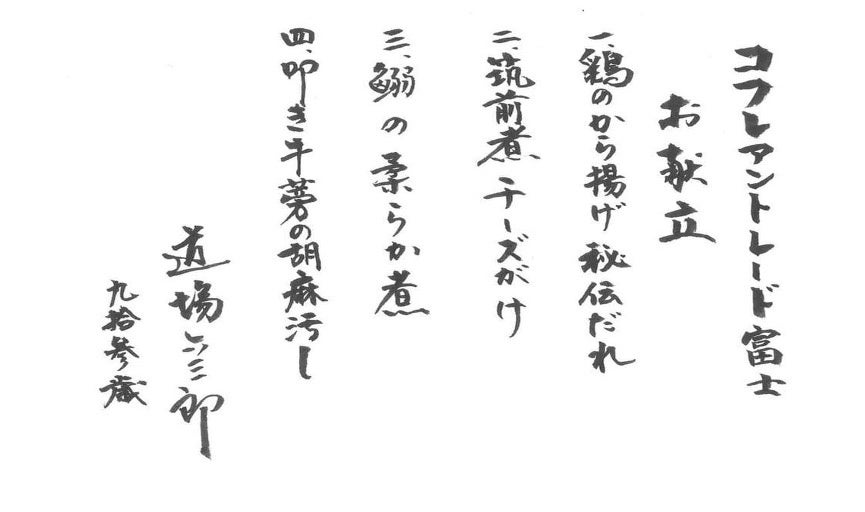 コフレアントレード富士
お献立
一、鶏のから揚げ 秘伝だれ
二、筑前煮 チーズがけ
三、鰯の柔らか煮
四、叩き牛蒡の胡麻汚し
道場六三郎
九拾参歳